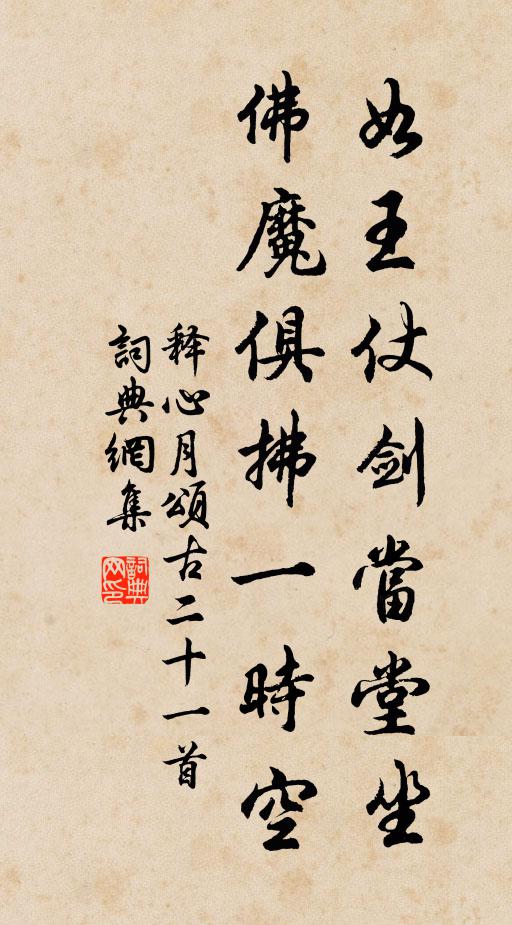 如王仗剑當堂坐
佛魔俱拂一時空
释心月頌古二十一首
詞典網集
詞典网印